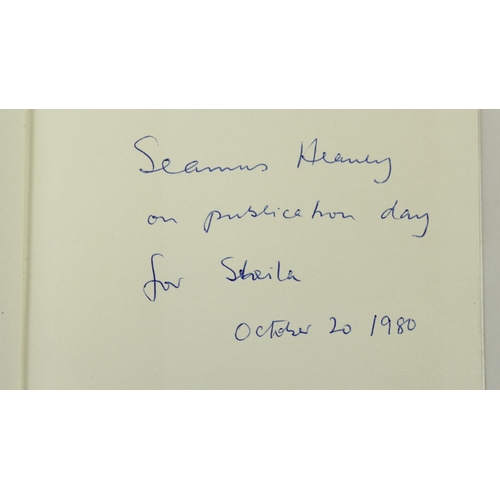 Seamus Heaney
on publication day
for Sheila
October 20 1980